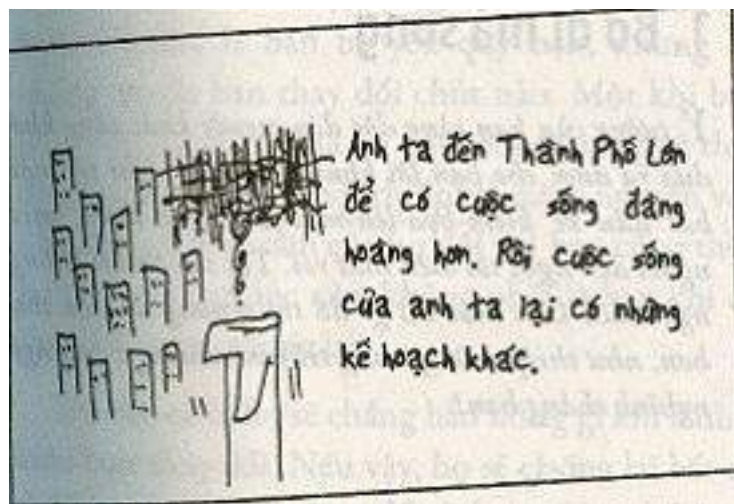 Anh ta đến Thành Phố Lớn
để có cuộc sống đàng
hoàng hơn. Rồi cuộc sống
của anh ta lại có những
kế hoạch khác.